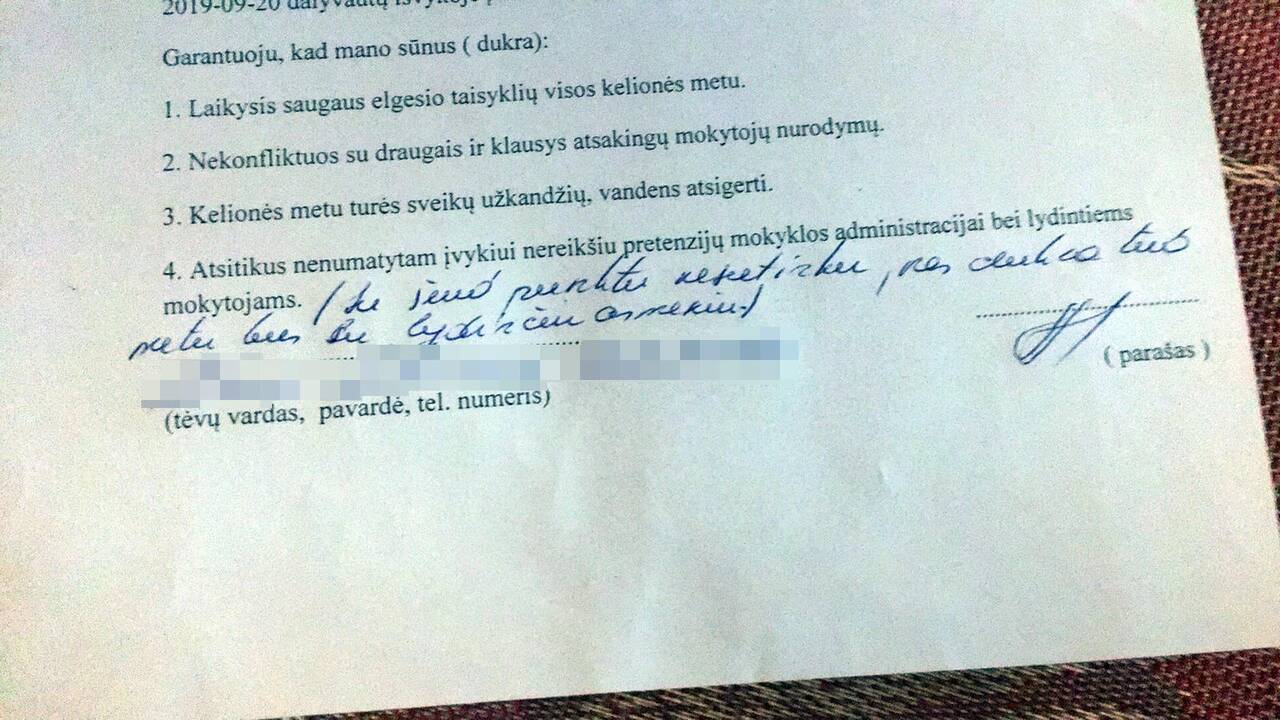 2019-09-20 dalyvautų išvykoje
Garantuoju, kad mano sūnus ( dukra):
1. Laikysis saugaus elgesio taisyklių visos kelionės metu.
2. Nekonfliktuos su draugais ir klausys atsakingų mokytojų nurodymų.
3. Kelionės metu turės sveikų užkandžių, vandens atsigerti.
4. Atsitikus nenumatytam įvykiui nereikšiu pretenzijų mokyklos administracijai bei lydintiems
mokytojams. (su šiuo punktu nesutinku, nes dukra tuo
metu bus su lydinčiu asmeniu)
( parašas )
(tėvų vardas, pavardė, tel. numeris)